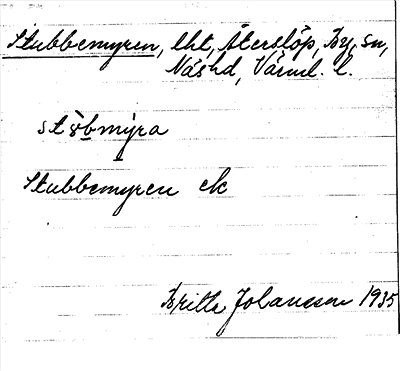 Stubbemyren, lht, Återslöp, By, sn,
Näshd, Värml. l.
stöbmýra
Stubbemyren ek
Britta Johansson 1935